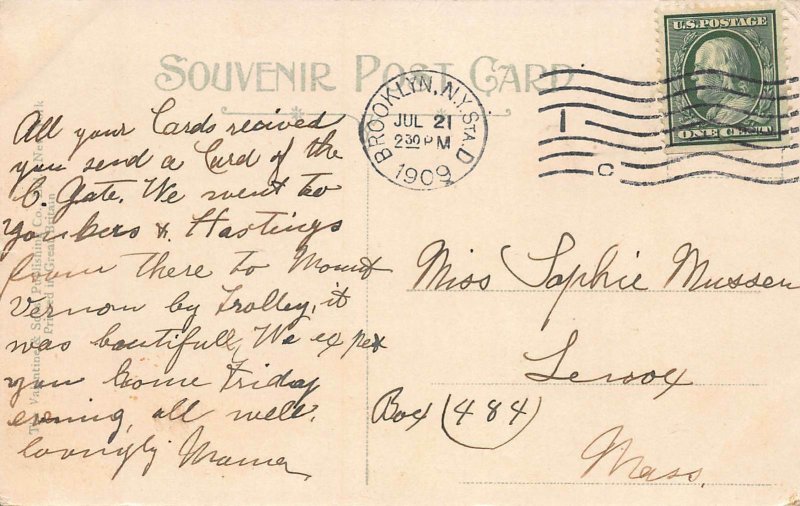 SOUVENIR POST CARD
U.S. POSTAGE
ONE CENT
BROOKLYN, N.Y. STA. D
JUL 21
2 30 PM
1909
1
C
All your Cards recived
you send a Card of the
C. Gate. We went to
Yonkers & Hastings
from there to Mount
Vernon by Trolley, it
was beutifull, We expex
you home Friday
evning, all well.
lovingly Mama
Miss Sophie Mussen
Lenox
Box (484)
Mass.
The Valentine & Sons Publishing Co., Ltd. New York
Printed in Great Britain